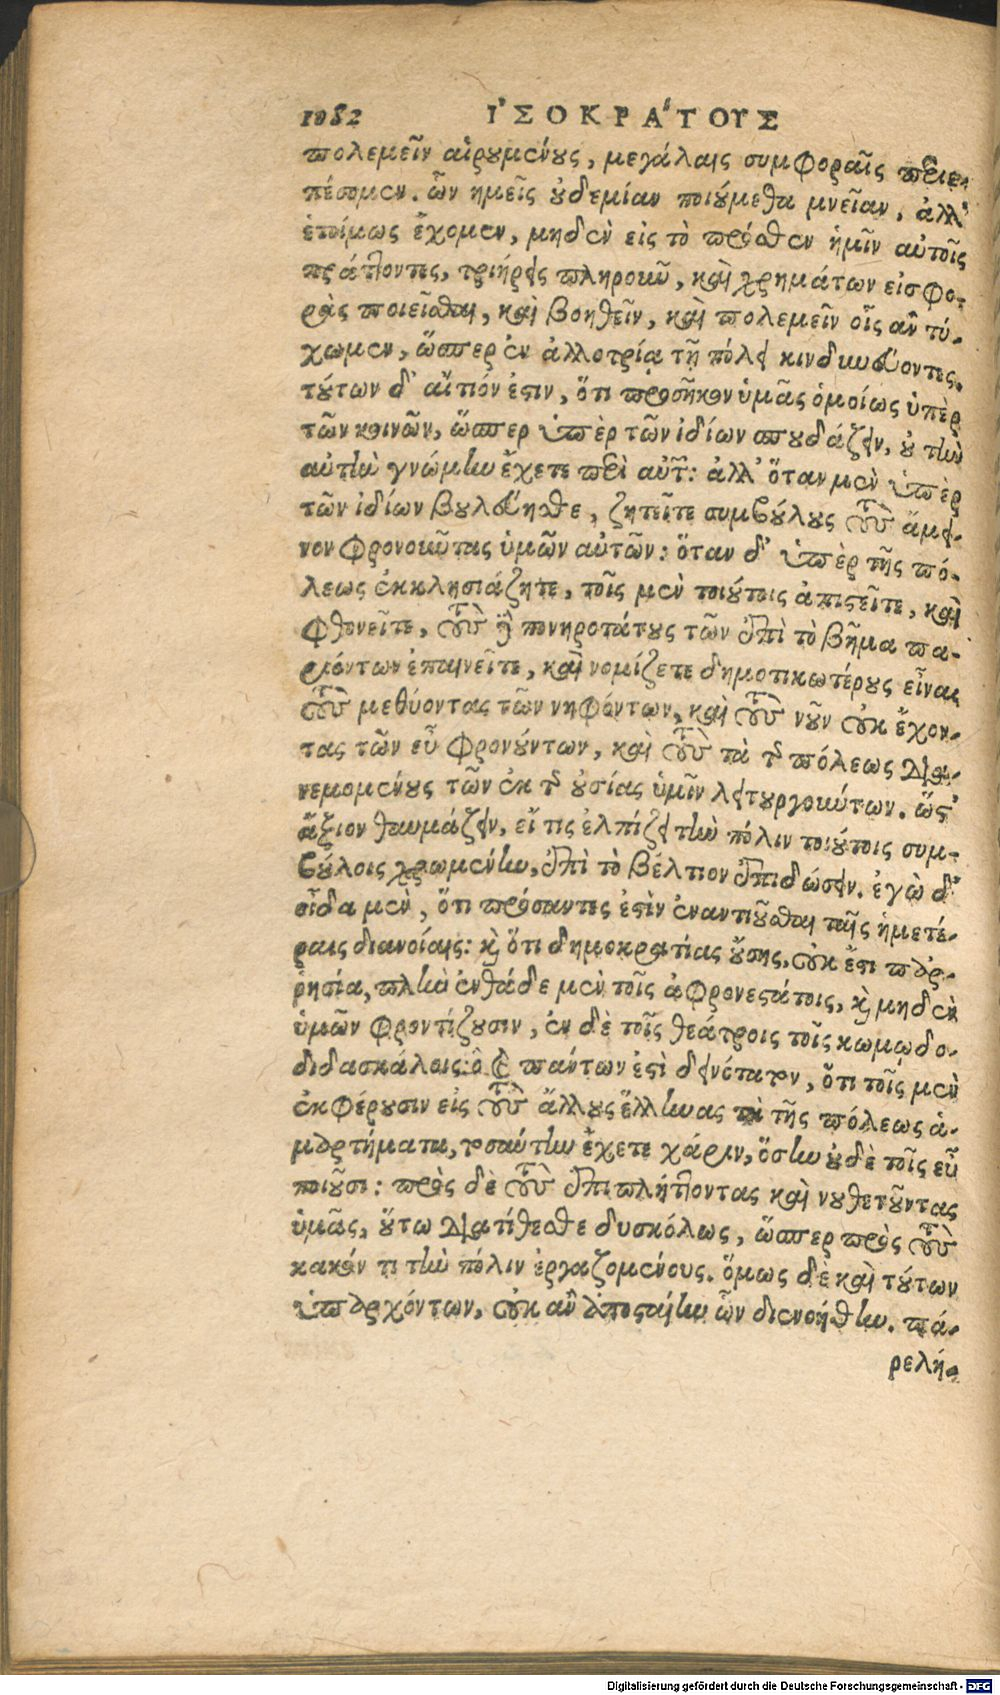 1082 ἸΣΟΚΡΆΤΟΥΣ
πολεμεῖν αἱρουμένους, μεγάλαις συμφοραῖς περιε-
πέσομεν. ὧν ἡμεῖς οὐδεμίαν ποιούμεθα μνείαν, ἀλλ'
ἑτοίμως ἔχομεν, μηδὲν εἰς τὸ πρόσθεν ἡμῖν αὐτοῖς
πράττοντες, τριήρεις πληροῦν, καὶ χρημάτων εἰσφο-
ρὰς ποιεῖσθαι, καὶ βοηθεῖν, καὶ πολεμεῖν οἷς ἂν τύ-
χωμεν, ὥσπερ ἐν ἀλλοτρίᾳ τῇ πόλει κινδυνεύοντες.
τούτων δ' αἴτιόν ἐστιν, ὅτι προσῆκον ὑμᾶς ὁμοίως ὑπὲρ
τῶν κοινῶν, ὥσπερ ὑπὲρ τῶν ἰδίων σπουδάζειν, οὐ τὴν
αὐτὴν γνώμην ἔχετε περὶ αὐτῶν: ἀλλ' ὅταν μὲν ὑπὲρ
τῶν ἰδίων βουλεύησθε, ζητεῖτε συμβούλους τοὺς ἄμει-
νον φρονοῦντας ὑμῶν αὐτῶν: ὅταν δ' ὑπὲρ τῆς πό-
λεως ἐκκλησιάζητε, τοῖς μὲν τοιούτοις ἀπιστεῖτε, καὶ
φθονεῖτε, τοὺς δὲ πονηροτάτους τῶν ἐπὶ τὸ βῆμα πα-
ριόντων ἐπαινεῖτε, καὶ νομίζετε δημοτικωτέρους εἶναι
τοὺς μεθύοντας τῶν νηφόντων, καὶ τοὺς νοῦν οὐκ ἔχον-
τας τῶν εὖ φρονούντων, καὶ τοὺς τὰ τῆς πόλεως διανε-
νεμομένους τῶν ἐκ τῆς οὐσίας ὑμῖν λειτουργούντων. ὥστ'
ἄξιον θαυμάζειν, εἴ τις ἐλπίζει τὴν πόλιν τοιούτοις συμ-
βούλοις χρωμένην, ἐπὶ τὸ βέλτιον ἐπιδώσειν. ἐγὼ δ'
οἶδα μὲν, ὅτι πρόσαντές ἐστὶν ἐναντιοῦσθαι ταῖς ἡμετέ-
ραις διανοίαις: καὶ ὅτι δημοκρατίας οὔσης, οὐκ ἔστι παρ-
ρησία, πλὴν ἐνθάδε μὲν τοῖς ἀφρονεστάτοις, καὶ μηδὲν
ὑμῶν φροντίζουσιν, ἐν δὲ τοῖς θεάτροις τοῖς κωμῳδο-
διδασκάλοις: ὃ καὶ πάντων ἐστὶ δεινότατον, ὅτι τοῖς μὲν
ἐκφέρουσιν εἰς τοὺς ἄλλους ἕλληνας τὰ τῆς πόλεως ἁ-
μαρτήματα, τοσαύτην ἔχετε χάριν, ὅσην οὐδὲ τοῖς εὖ
ποιοῦσι: πρὸς δὲ τοὺς ἐπιπλήττοντας καὶ νουθετοῦντας
ὑμᾶς, οὕτω διατίθεσθε δυσκόλως, ὥσπερ πρὸς τοὺς
κακόν τι τὴν πόλιν ἐργαζομένους. ὅμως δὲ καὶ τούτων
ὑπαρχόντων, οὐκ ἂν ἀποσταίην ὧν διενοήθην. πα-
ρελή-
Digitalisierung gefördert durch die Deutsche Forschungsgemeinschaft - DFG